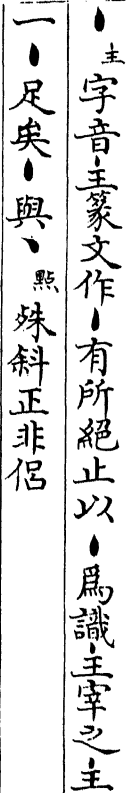 丶主字音主篆文作丶有所絕止以丶爲識主宰之主
一丶足矣丶與、點殊斜正非侶